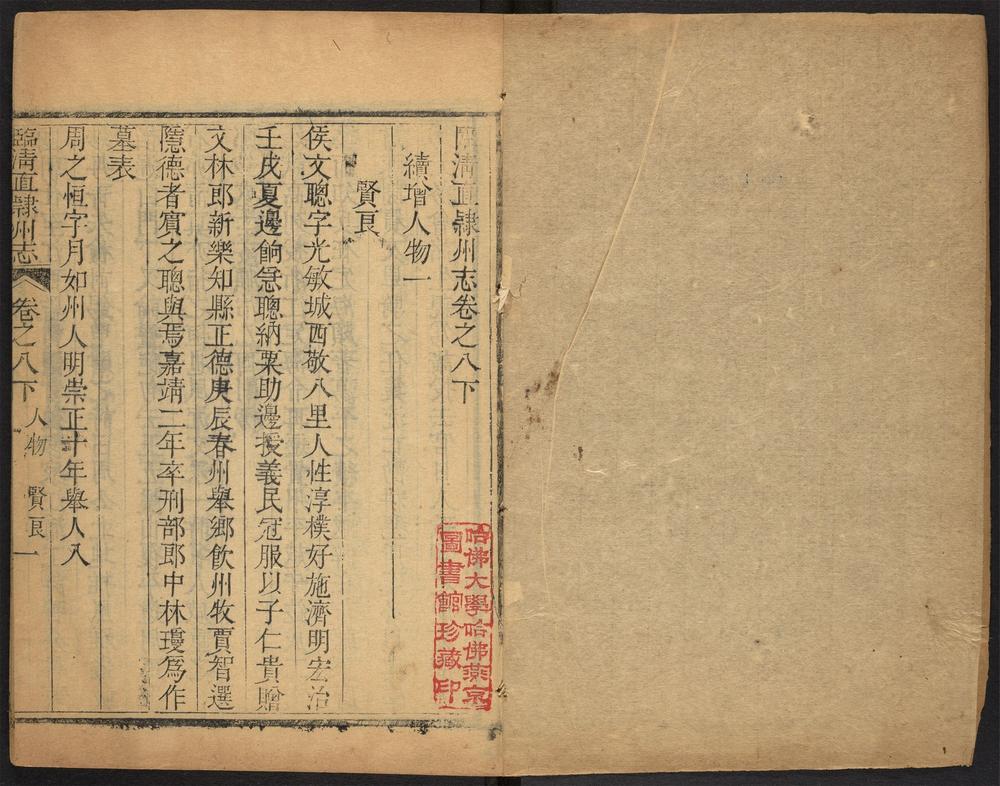 臨淸直隷州志卷之八下
續增人物一
賢良
侯文聰字光敏城西敬八里人性淳樸好施濟明宏治
壬戌夏邊餉急聰納粟助邊授義民冠服以子仁貴贈
文林郎新樂知縣正德庚辰春州舉鄉飲州牧賈智選
隱德者賓之聰與焉嘉靖二年卒刑部郎中林瓊爲作
墓表
周之恒字月如州人明崇正十年舉人入
臨淸直隷州志 卷之八下 人物 賢良 一
哈佛大學哈佛燕京
圖書館珍藏印